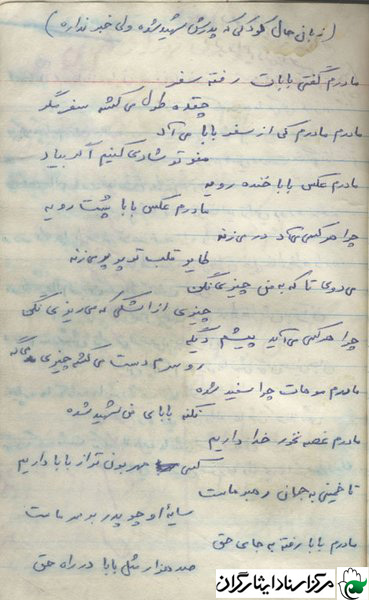 (زبانی حال کودکی که پدرش شهید شده ولی خبر نداره)
مادرم گفتی بابات رفته سفر
چقده طول می کشه سفر مگر
مادرم مادرم کی از سفر بابا می آد
منو تو شادی کنیم اگر بیاد
مادرم عکس بابا خنده رویه
مادرم عکس بابا پشت رویه
چرا هر کسی می آد در می زنه
قلب تو پر پر می زنه
می دوی تا که به من چیزی نگن
چیزی از اشکی که می ریزی نگن
چرا هر کسی می آید پیشم دیگه
رو سرم دست می کشه چیزی میگه
مادرم موهات چرا سفید شده
نکنه بابای من شهید شده
مادرم غصه نخور خدا داریم
کسی مهربون تر از بابا داریم
تا خمینی به جهان رهبر ماست
سایه او چو پدر بر سر ماست
مادرم بابا رفته به جای حق
صد هزار مثل بابا در راه حق
مرکز اسناد ایثارگران